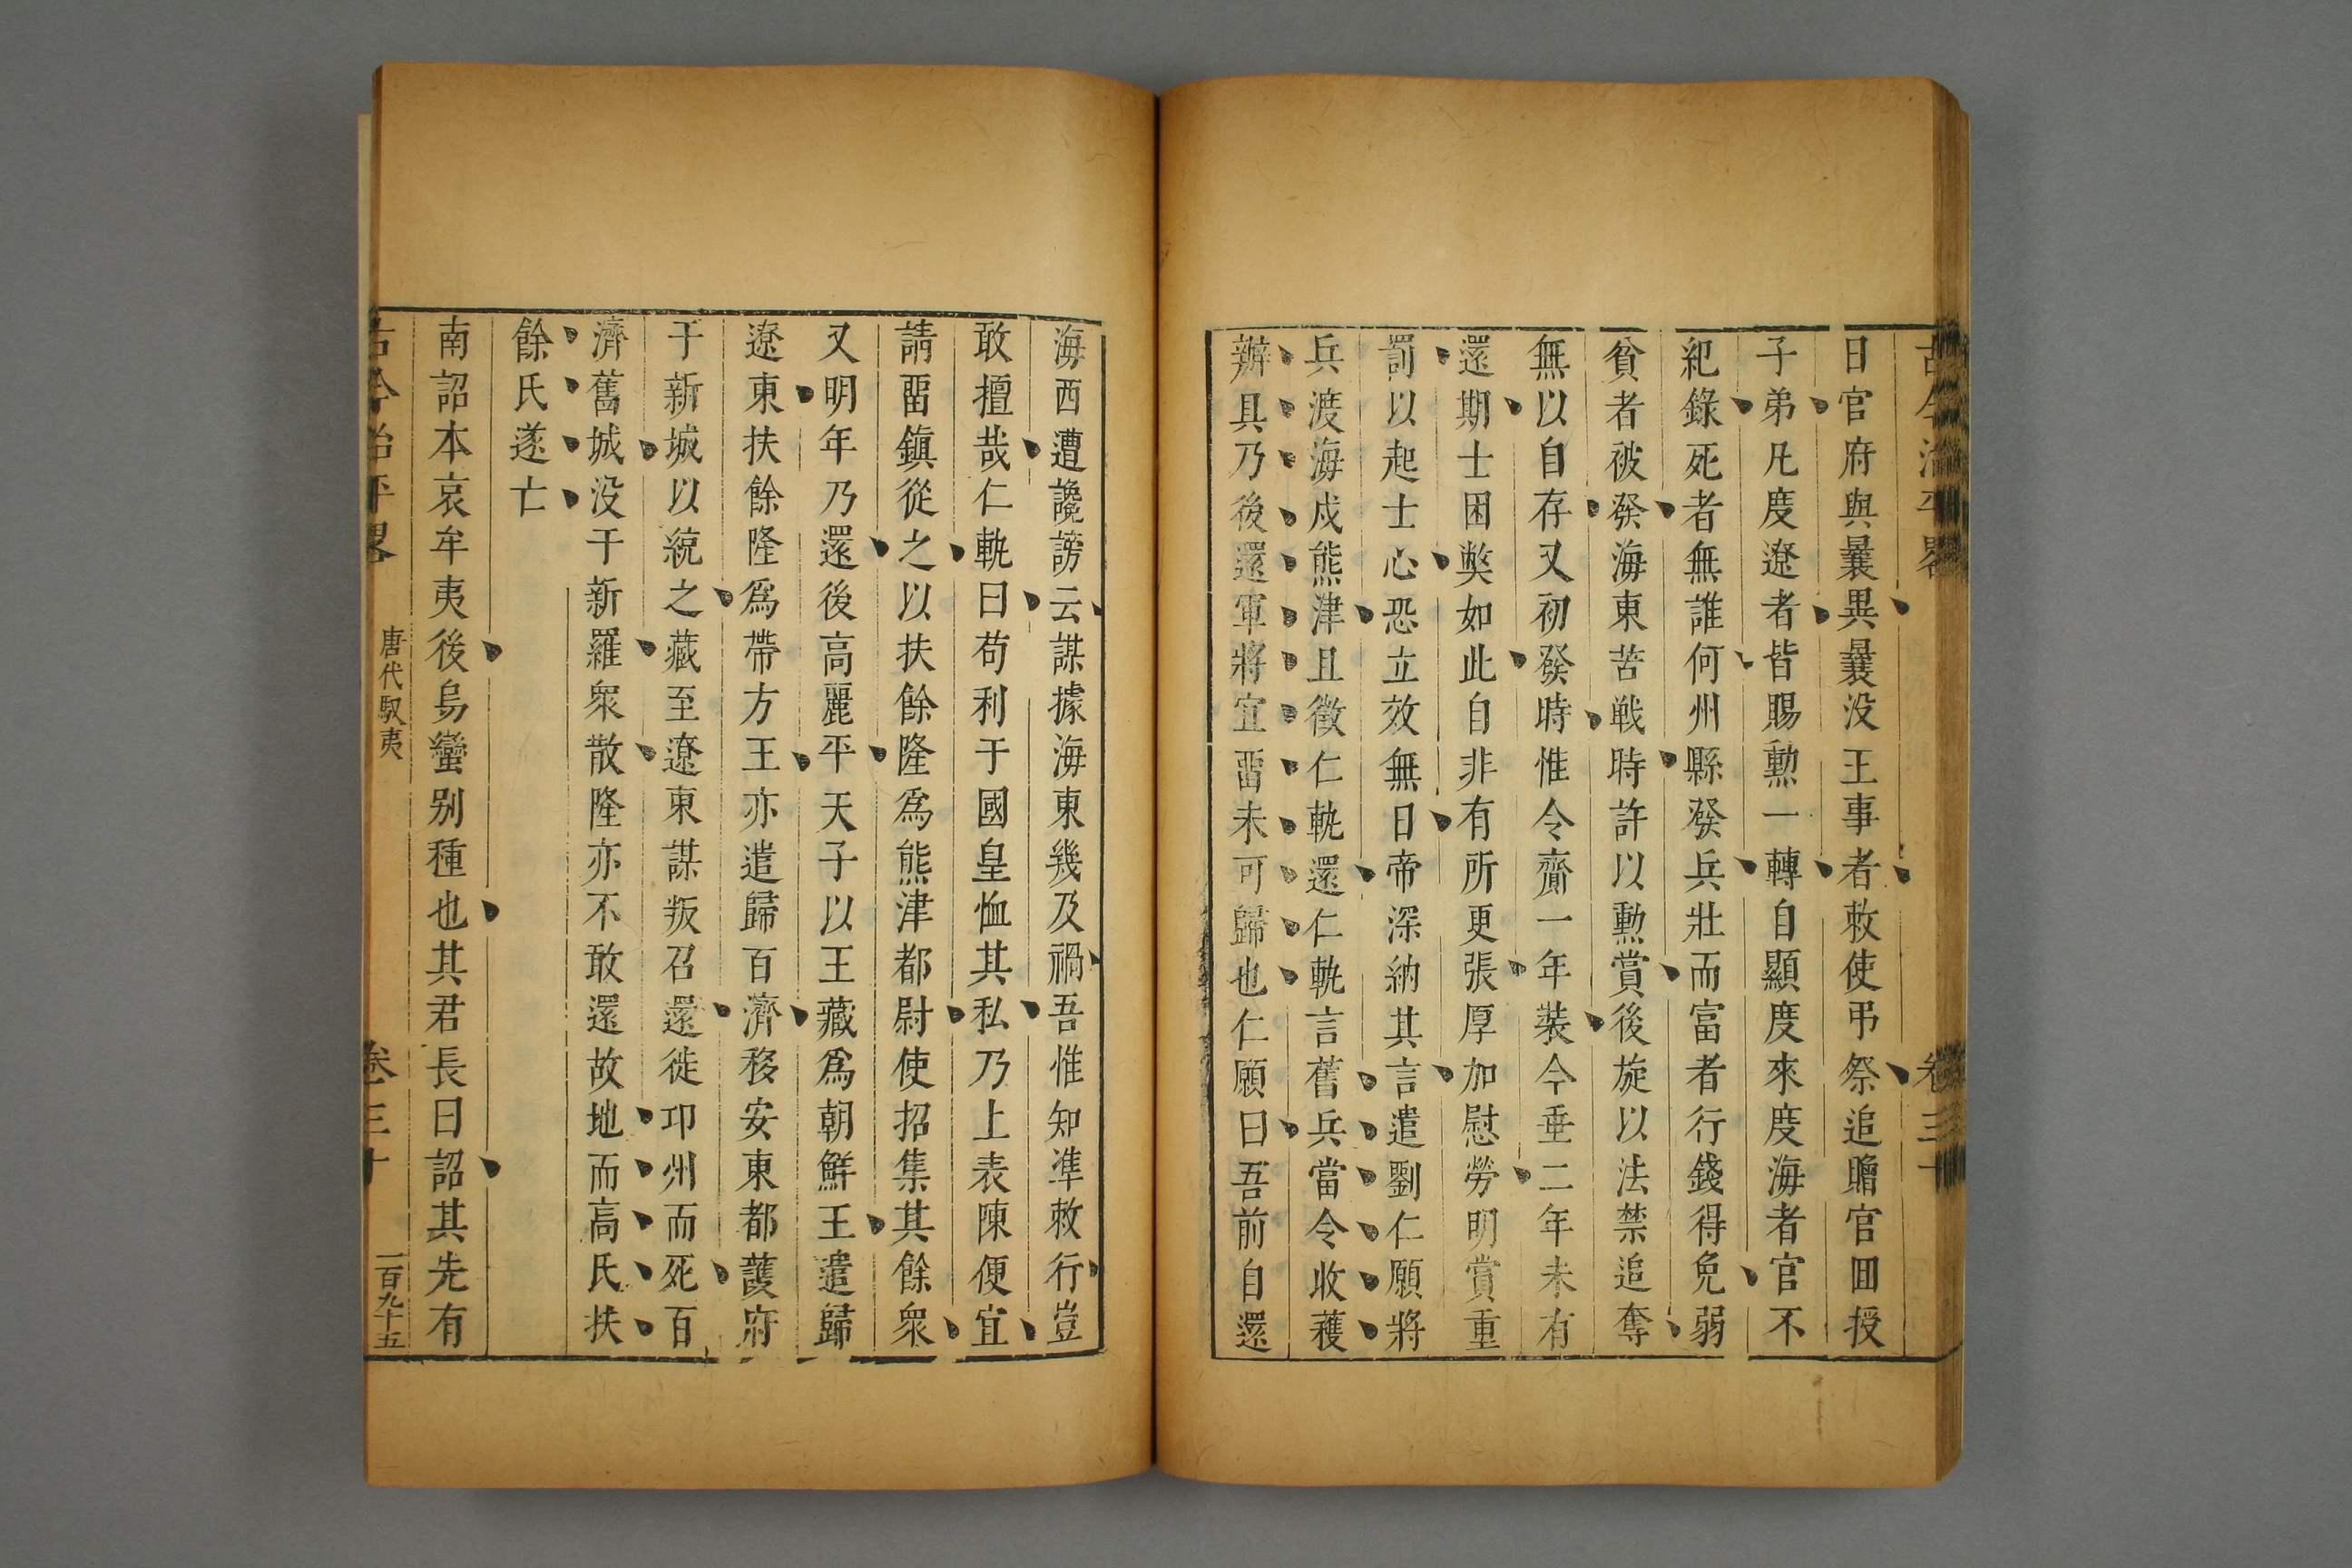 古今治平畧 卷三十
日官府與曩異曩没王事者敕使弔祭追贈官囬授
子弟凡度遼者皆賜勲一轉自顯度來度海者官不
紀錄死者無誰何州縣發兵壯而富者行錢得免弱
貧者被發海東苦戦時許以勲賞後旋以法禁追奪
無以自存又初發時惟令齎一年裝今垂二年未有
還期士困獘如此自非有所更張厚加慰勞明賞重
罰以起士心恐立效無日帝深納其言遣劉仁願將
兵渡海戍熊津且徵仁軌還仁軌言舊兵當令收穫
辦具乃後還軍將宜畱未可歸也仁願曰吾前自還
海西遭讒謗云謀據海東幾及禍吾惟知凖敕行豈
敢擅哉仁軌曰苟利于國皇恤其私乃上表陳便宜
請畱鎮從之以扶餘隆爲熊津都尉使招集其餘衆
又明年乃還後高麗平天子以王藏爲朝鮮王遣歸
遼東扶餘隆爲帶方王亦遣歸百濟移安東都護府
于新城以統之藏至遼東謀叛召還徙卭州而死百
濟舊城没于新羅衆散隆亦不敢還故地而高氏扶
餘氏遂亡
南詔本哀牢夷後烏蠻别種也其君長曰詔其先有
古今治平畧 唐代馭夷 卷三十 一百九十五